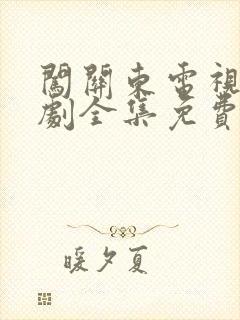 闖關東電視
劇全集免費
暖夕夏